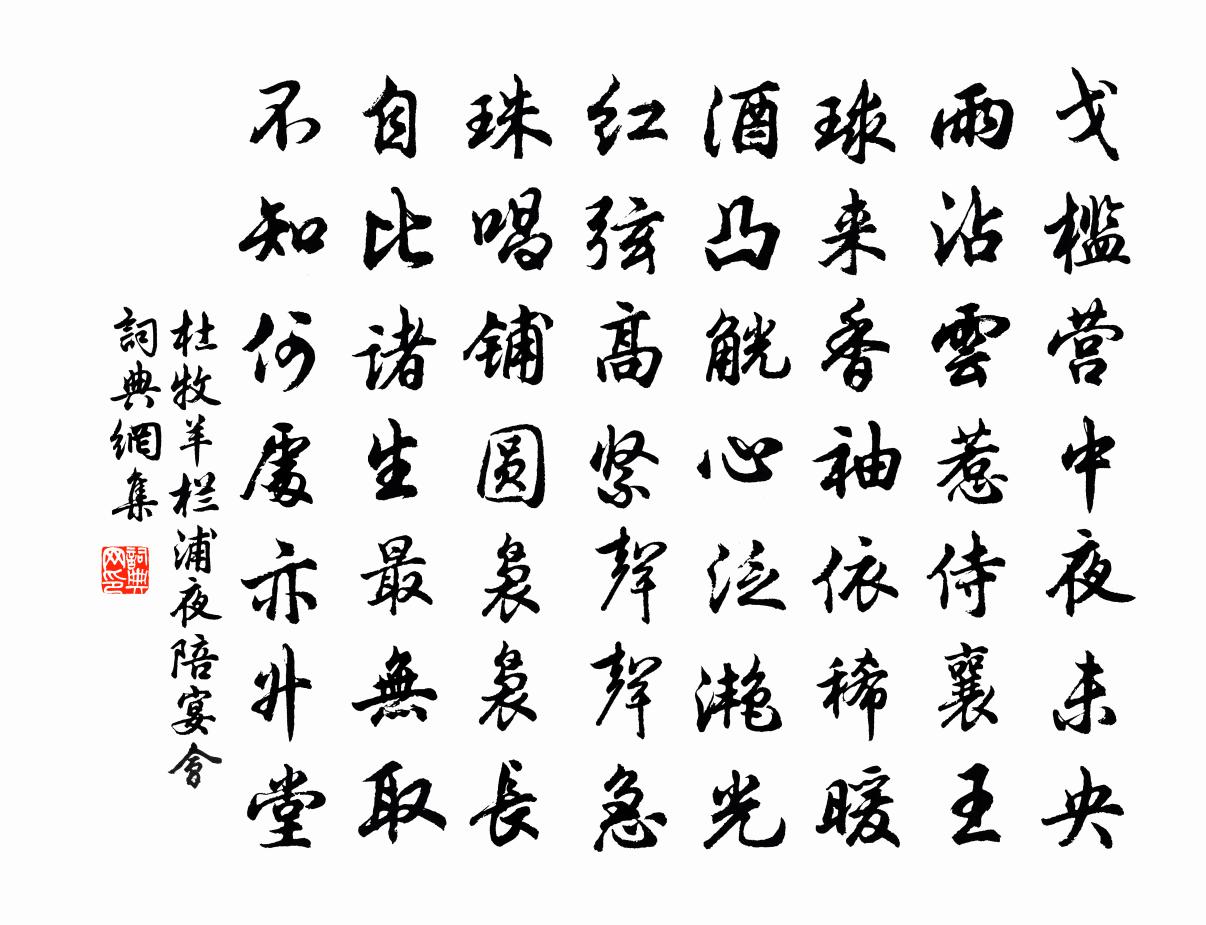 戈槛营中夜未央
雨沾雲惹侍襄王
球来香袖依稀暖
酒凸觥心泛滟光
红弦高紧聲聲急
珠唱铺圆袅袅長
自比诸生最無取
不知何處亦升堂
杜牧羊栏浦夜陪宴會
詞典網集
詞典网印